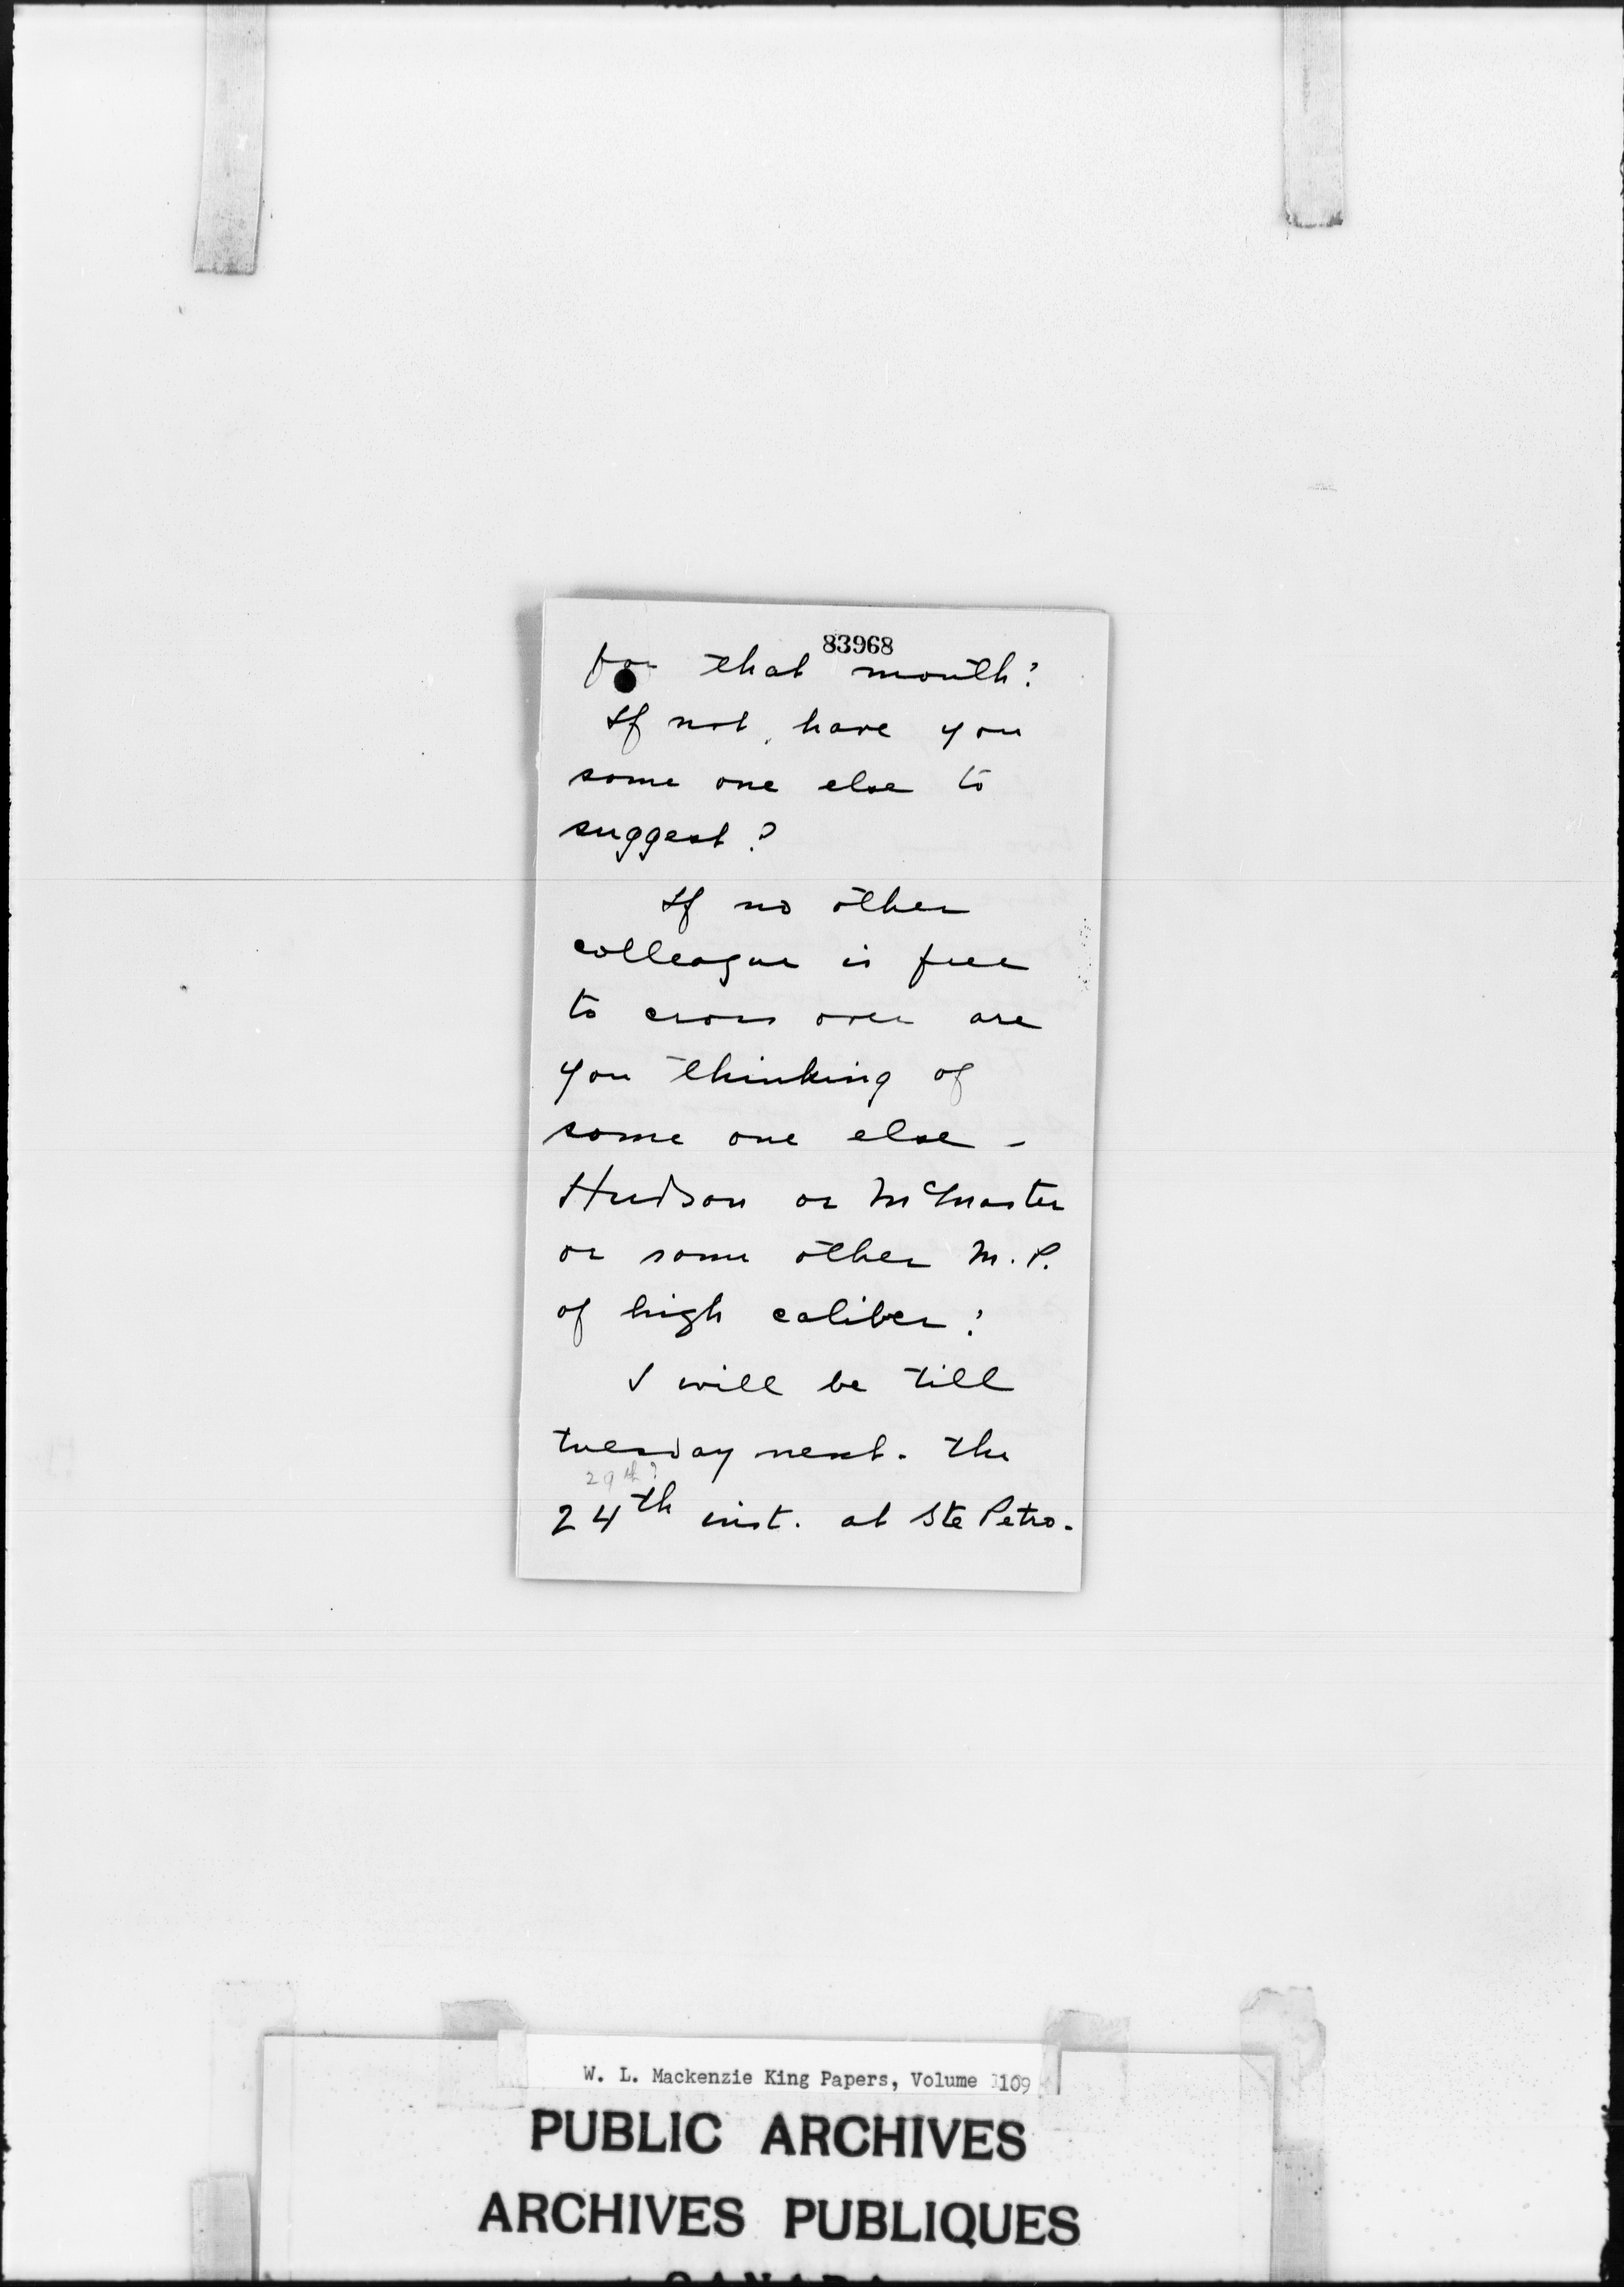 83968
for that month?
If not, have you
some one else to
suggest?
If no other
colleague is free
to cross over are
you thinking of
some one else -
Hudson or McMaster
or some other M.P.
of high caliber?
I will be till
tuesday next. the
29th?
24th inst. at Ste Petro.
W. L. Mackenzie King Papers, Volume 109
PUBLIC ARCHIVES
ARCHIVES PUBLIQUES
CANADA